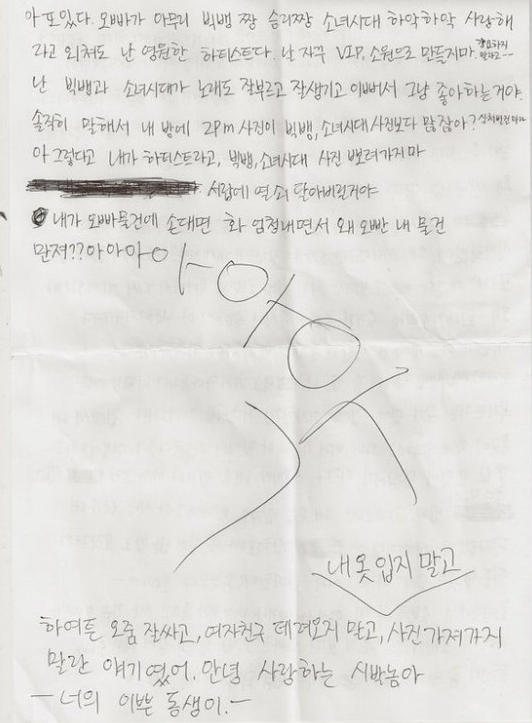 아 또있다. 오빠가 아무리 빅뱅 짱 승리짱 소녀시대 하악하악 사랑해
라고 외쳐도 난 영원한 하티스트다. 날 자꾸 V.I.P, 소원으로 만들지마. 강요하지 말라고ㅡㅡ
난 빅뱅과 소녀시대가 노래도 잘부르고 잘생기고 이뻐서 그냥 좋아하는거야.
솔직히 말해서 내 방에 2pm 사진이 빅뱅, 소녀시대 사진보다 많잖아?
아 그렇다고 내가 하티스트라고, 빅뱅, 소녀시대 사진 뽀려가지마
서랍에 열쇠 달아버릴거야
내가 오빠물건에 손대면 화 엄청내면서 왜 오빤 내 물건
만져??아아아아
악
내 옷 입지 말고
하여튼 오줌 잘싸고, 여자친구 데려오지 말고, 사진 가져가지
말란 얘기였어. 안녕 사랑하는 시박놈아
ㅡ너의 이쁜 동생이.ㅡ